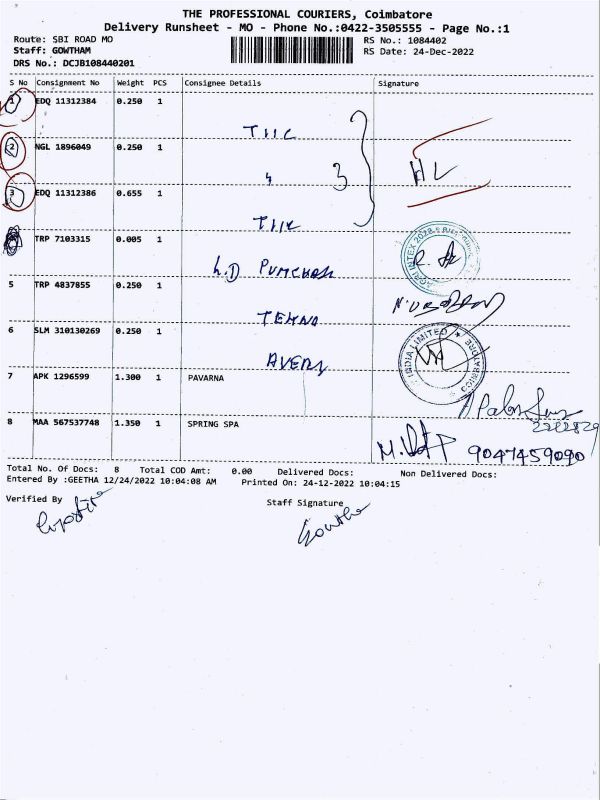 THE PROFESSIONAL COURIERS, Coimbatore
Delivery Runsheet - MO - Phone No.:0422-3505555 - Page No.:1
Route: SBI ROAD MO RS No.: 1084402
Staff: GOWTHAM RS Date: 24-Dec-2022
DRS No.: DCJB108440201
S No Consignment No Weight PCS Consignee Details Signature
1 EDQ 11312384 0.250 1
2 NGL 1896049 0.250 1
3
3 EDQ 11312386 0.655 1
TRP 7103315 0.005 1
5 TRP 4837855 0.250 1
6 SLM 310130269 0.250 1
INDIA LIMITED
7 APK 1296599 1.300 1 PAVARNA
8 MAA 567537748 1.350 1 SPRING SPA
9047459090
Total No. Of Docs: 8 Total COD Amt: 0.00 Delivered Docs: Non Delivered Docs:
Entered By :GEETHA 12/24/2022 10:04:08 AM Printed On: 24-12-2022 10:04:15
Verified By Staff Signature
Gowtha